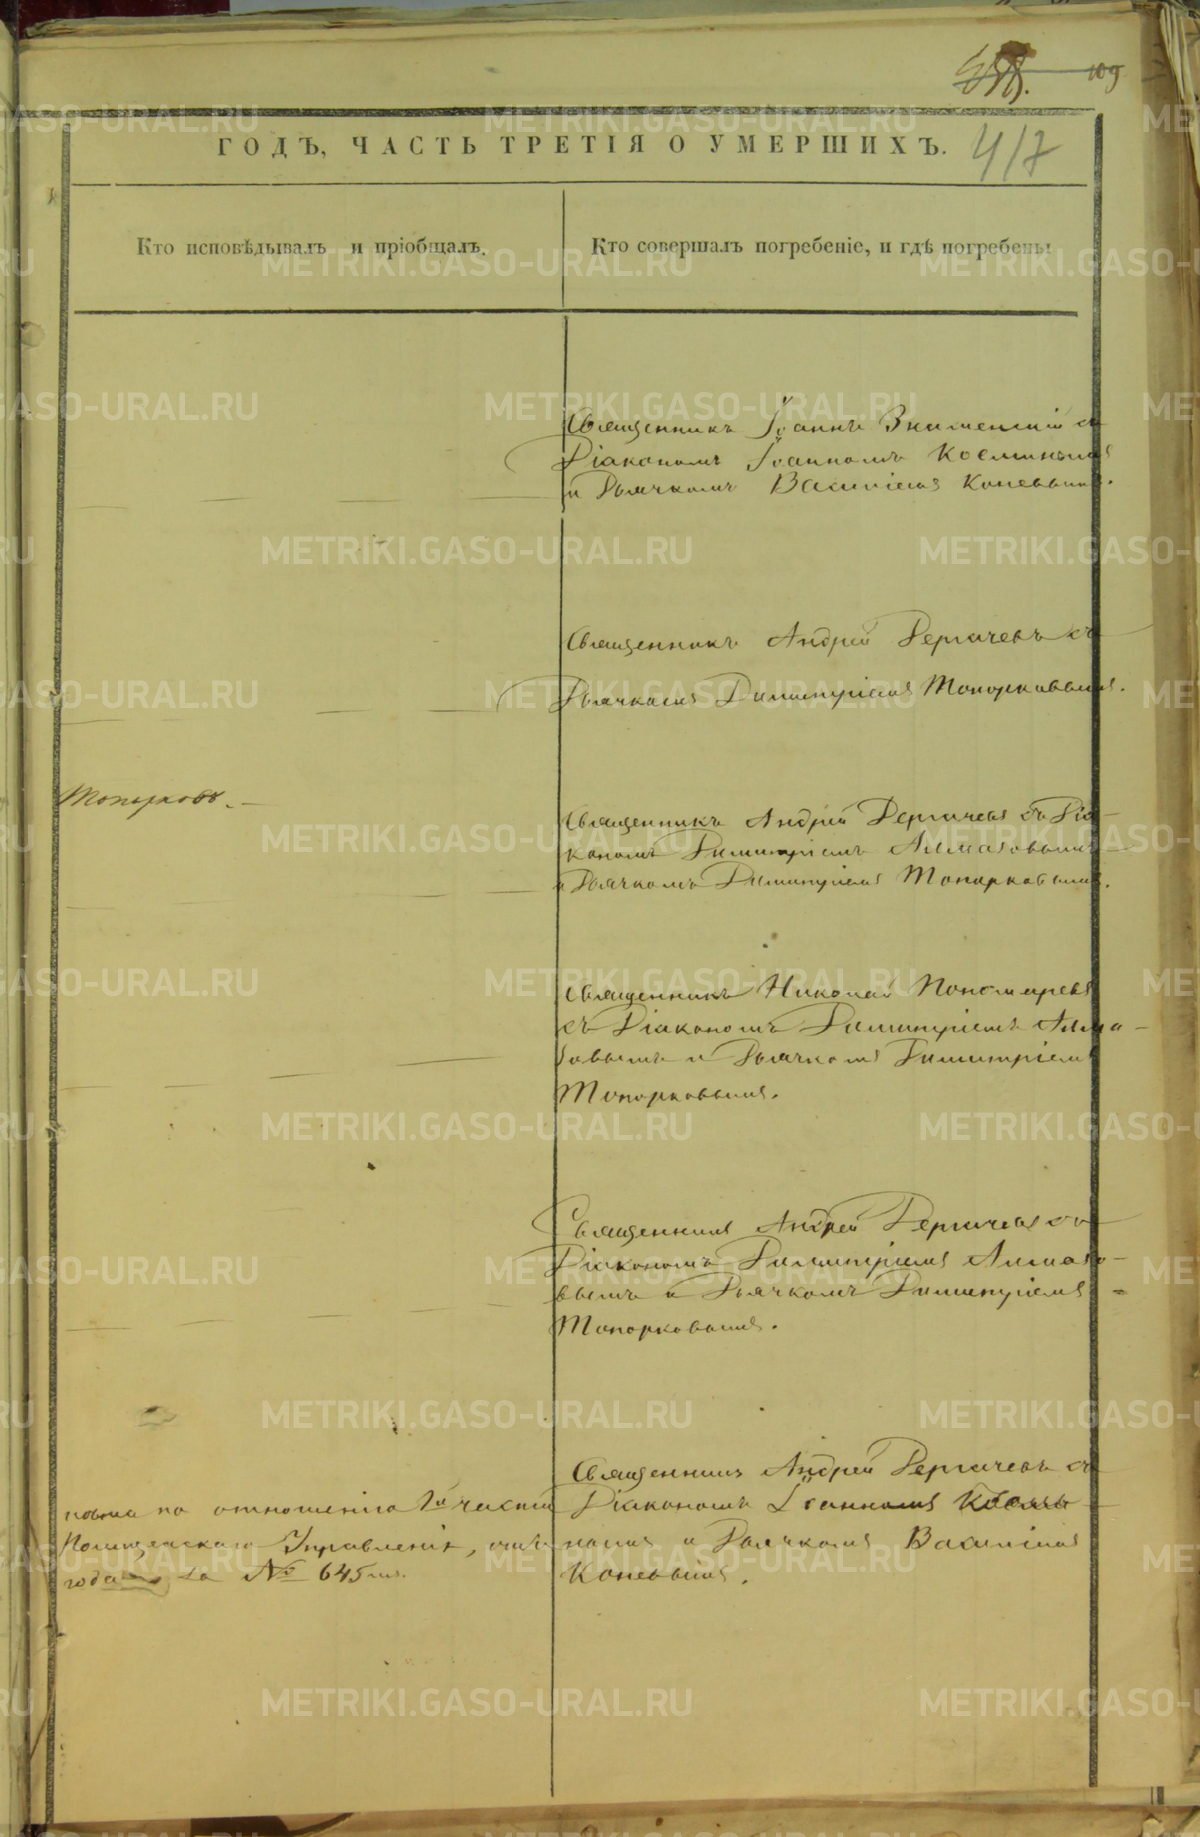 109
417
ГОДЪ, ЧАСТЬ ТРЕТІЯ О УМЕРШИХЪ.
Кто исповѣдывалъ и пріобщалъ.
Кто совершалъ погребеніе, и гдѣ погребены
Священникъ Іоаннъ Знаменскій съ
Діакономъ Іоанномъ Косминымъ
и Дьячкомъ Василіемъ Коневымъ.
Священникъ Андрей Дергачевъ съ
Дьячкомъ Димитріемъ Топорковымъ.
Топорковъ.
Священникъ Андрей Дергачевъ съ Діа-
кономъ Димитріемъ Алмазовымъ
и Дьячкомъ Димитріемъ Топорковымъ.
Священникъ Николай Пономаревъ
съ Діакономъ Димитріемъ Алма-
зовымъ и Дьячкомъ Димитріемъ
Топорковымъ.
Священникъ Андрей Дергачевъ съ
Діакономъ Димитріемъ Алмазо-
вымъ и Дьячкомъ Димитріемъ
Топорковымъ.
по отношенію части
Полицейскаго Управленія,
года за № 645мъ.
Священникъ Андрей Дергачевъ съ
Діакономъ Іоанномъ Косми-
нымъ и Дьячкомъ Василіемъ
Коневымъ.
METRIKI.GASO-URAL.RU